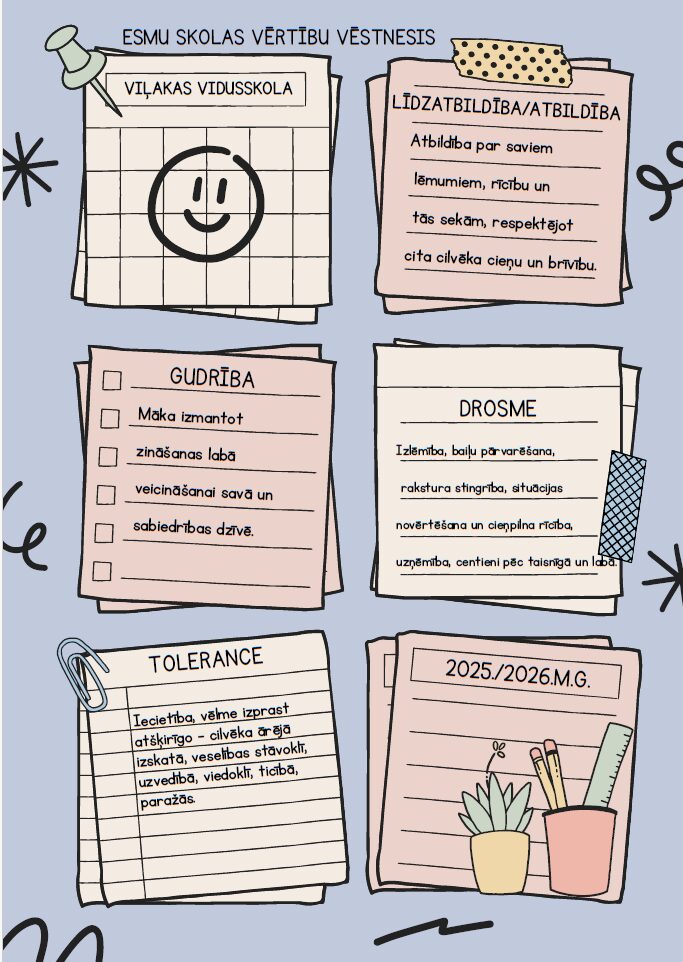 ESMU SKOLAS VĒRTĪBU VĒSTNESIS
VIĻAKAS VIDUSSKOLA
LĪDZATBILDĪBA/ATBILDĪBA
Atbildība par saviem
lēmumiem, rīcību un
tās sekām, respektējot
cita cilvēka cieņu un brīvību.
GUDRĪBA
Māka izmantot
zināšanas labā
veicināšanai savā un
sabiedrības dzīvē.
DROSME
Izlēmība, baiļu pārvarēšana,
rakstura stingrība, situācijas
novērtēšana un cieņpilna rīcība,
uzņēmība, centieni pēc taisnīgā un labā.
TOLERANCE
Iecietība, vēlme izprast
atšķirīgo - cilvēka ārējā
izskatā, veselības stāvoklī,
uzvedībā, viedoklī, ticībā,
paražās.
2025./2026.M.G.